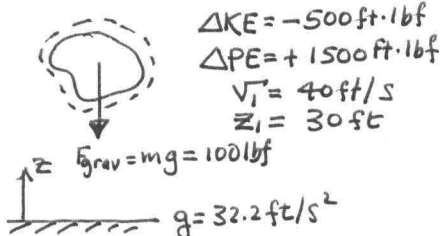 ΔKE = -500 ft·lbf
ΔPE = + 1500 ft·lbf
V₁ = 40 ft/s
z₁ = 30 ft
Fgrav = mg = 100 lbf
z
g = 32.2 ft/s²